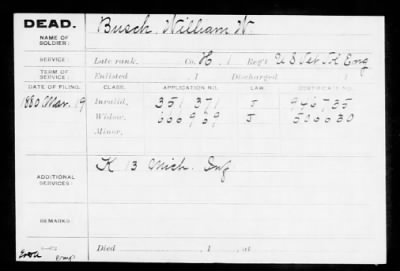 DEAD.
NAME OF SOLDIER: Busch, William W.
SERVICE: Late rank, Co. H, 1 Reg't U S Vet. V. Eng
TERM OF SERVICE: Enlisted , 1 Discharged , 1
DATE OF FILING. CLASS. APPLICATION NO. LAW. CERTIFICATE NO.
1880 Mar. 19 Invalid, 351 371 J 946735
Widow, 666969 J 500030
Minor,
ADDITIONAL SERVICES: K 13 Mich. Inf
REMARKS:
Died , 1 , at